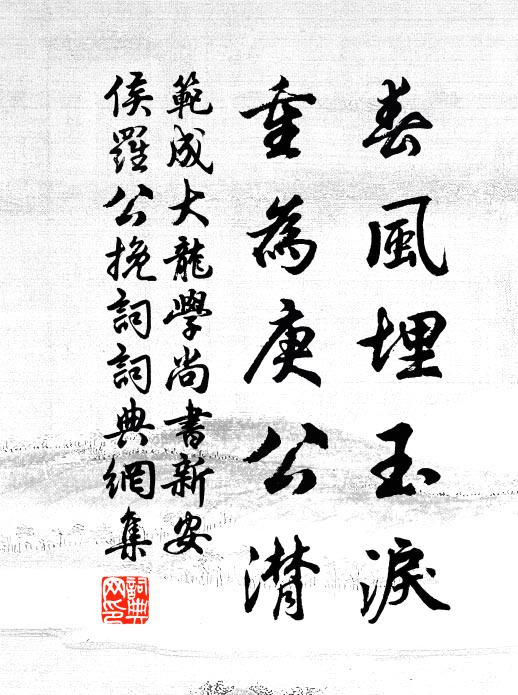 春風埋玉淚
重為庚公潸
範成大龍學尚書新安
侯羅公挽詞詞典網集
詞典網印